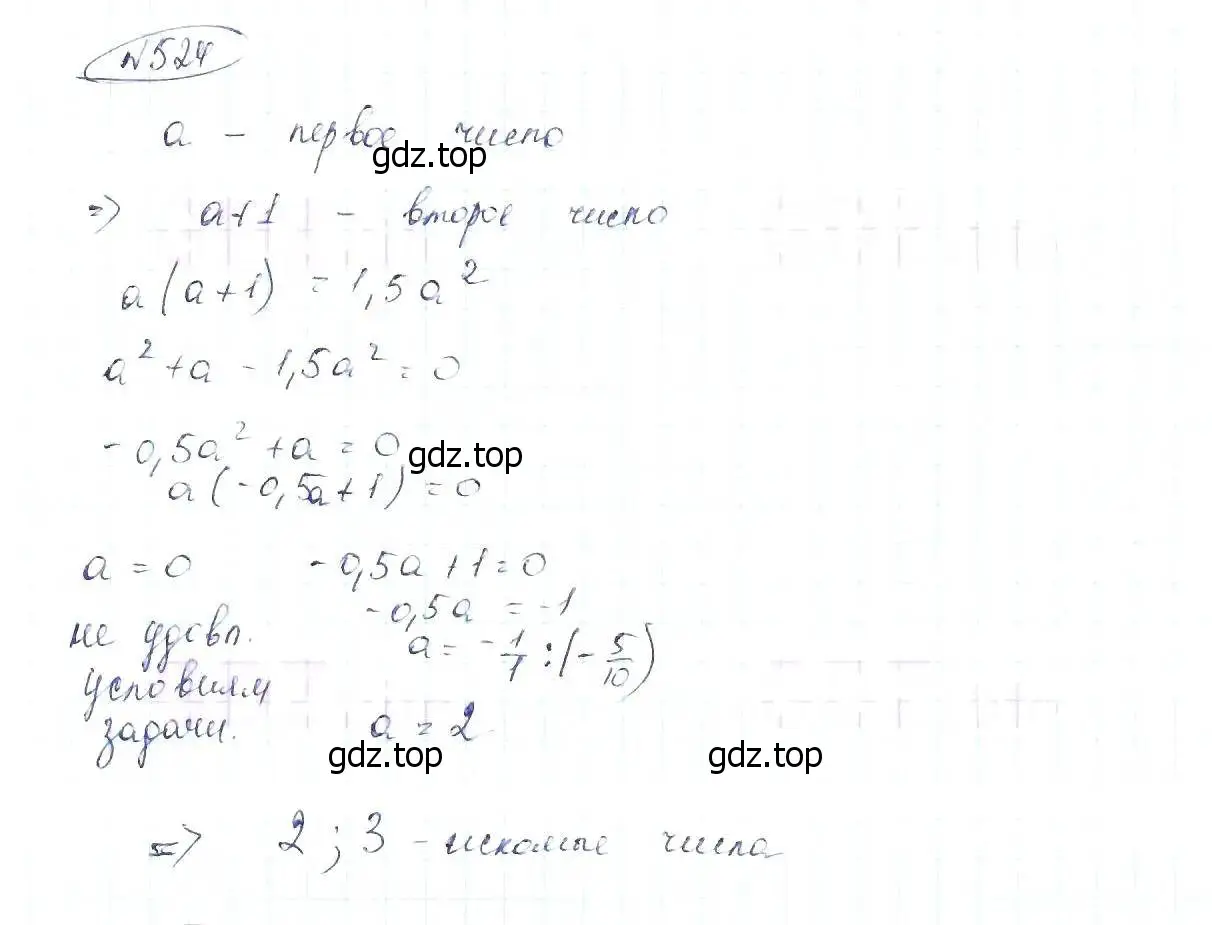 №524
a – первое число
gdz.top
=> a+1 – второе число
a(a+1) = 1,5a²
a² + a - 1,5a² = 0
-0,5a² + a = 0
gdz.top
a(-0,5a+1) = 0
a = 0 -0,5a+1=0
-0,5a = -1
не удовл. a = -1/1 : (-5/10)
условиям
задачи. a = 2
gdz.top gdz.top
=> 2; 3 – искомые числа